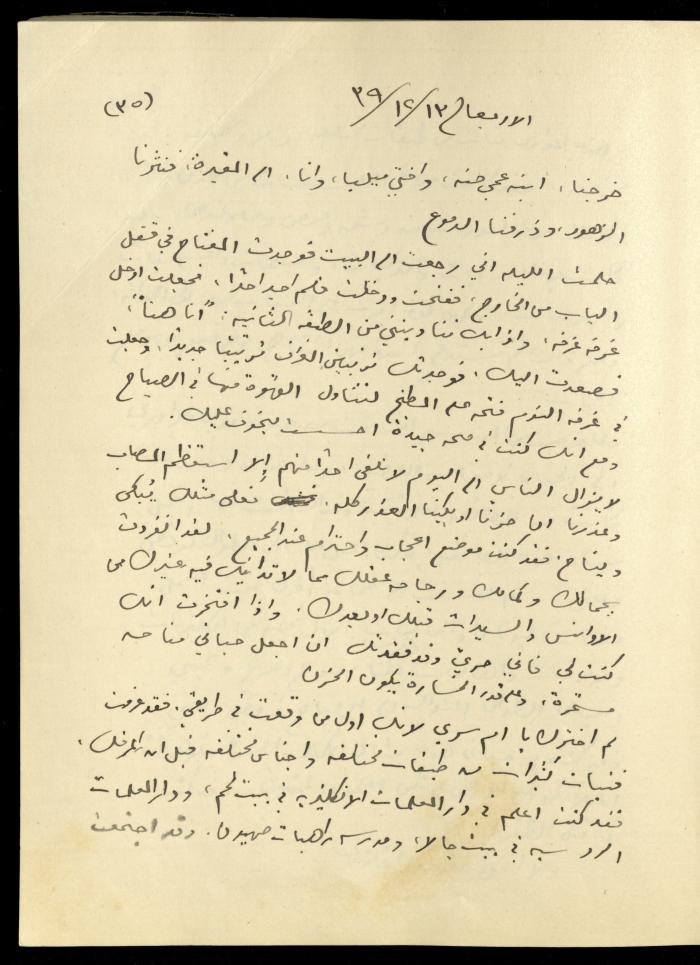 (٣٥)
الاربعاء ٣٩/١٢/١٣
خرجنا، ابنة عمي حنه، واختي ميليا، وانا، الى المقبرة، فنثرنا
الزهور، وذرفنا الدموع
حلمت الليله اني رجعت الى البيت فوجدت المفتاح في قفل
الباب من الخارج، ففتحت ودخلت فلم اجد احدًا، فجعلت ادخل
غرفه غرفه، واذا بك تنادينني من الطبقه الثانيه: "انا هنا"،
فصعدت اليك، فوجدتك ترتبين الفراش ترتيبًا جديدًا، وجعلت
في غرفه النوم فتحه على المطبخ لنتناول القهوة منها في الصباح
ومع انك كنت في صحه جيدة احسست بخوف عليك.
لا يزال الناس الى اليوم لا نلقى احدًا منهم إلا استفظع المصاب
وعذرنا اما حزنًا او بكينا العذر كله. فعلى مثلك يُبكى
ويناح. فقد كنت موضع اعجاب واحترام عند الجميع. لقد انفردت
بجمالك وكمالك ورجاحه عقلك مما لا تدانيك فيه غيرك من
الاوانس والسيدات قبلك او بعدك. واذا افتخرت انك
كنت لي فاني حريّ وقد فقدتك ان اجعل حياتي مناحه
مستمرة، وعلى قدر الخسارة يكون الحزن
لم اخترك يا ام سري لانك اول من وقعت في طريقي. فقد عرفت
فتيات كثيرات من طبقات مختلفه واجناس مختلفه قبل ان اعرفك.
فقد كنت اعلم في دار المعلمات الانكليزيه في بيت لحم، ودار المعلمات
الروسيه في بيت جالا، ومدرسه راهبات صهيون. وقد اجتمعت